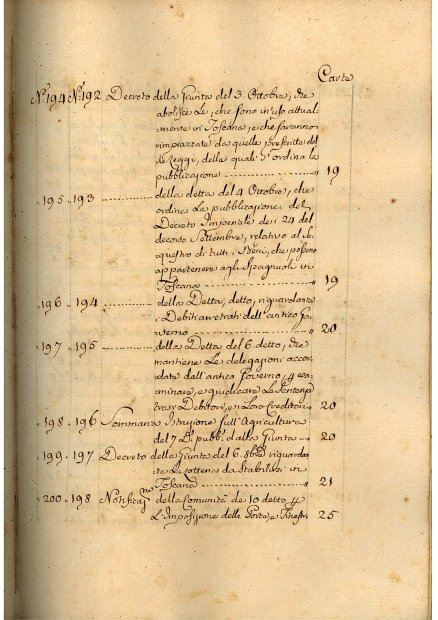 Carte
Nº 194 Nº 192 Decreto della Giunta del 3. Ottobre, che
abolisce Le, che sono in uso attual-
mente in Toscana, e che saranno
rimpiazzate da quelle prescritte del-
le Leggi, delle quali S' ordina la
pubblicazione — " 19
- 195 - 193 — della detta del 4 Ottobre, che
ordina La pubblicazione del
Decreto Imperiale dei 24 del
decorso Settembre, relativo al Se-
questro di tutti i Beni, che possono
appartenere agli Spagnuoli in
Toscana — " 19
- 196 - 194 — della Detta, detto, riguardante
i Debiti arretrati dell' antico Go-
verno — " 20
- 197 - 195 — della Detta del 6. detto, che
mantiene Le delegazioni accor-
date dall' antico Governo, p esa-
minare, e giudicare Le
tra i Debitori, e i Loro Creditori " 20
- 198 - 196 Sommaria Istruzione sull' Agricoltura
del 7 d.º pubb. dalla Giunta — " 20
- 199 - 197 Decreto della Giunta del 6. 8bre riguardan-
te La Lotteria da Stabilirsi in
Toscana — " 21
- 200 - 198 Notificaz.ne della Comunità de 10 detto p
L' Imposizione delle Porte, e Finestre " 25